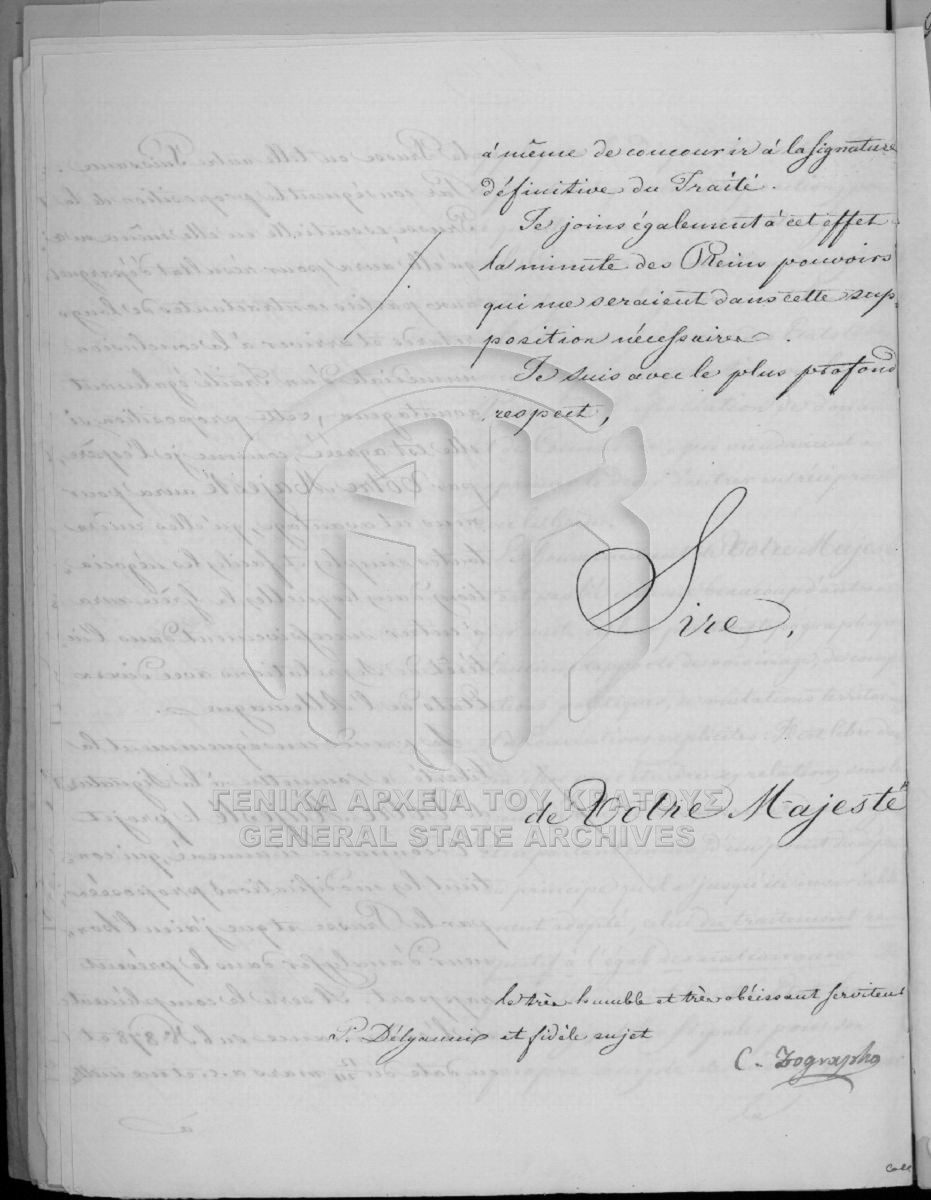 à même de concourir à la signature
définitive du Traité.
Je joins également à cet effet
la minute des Pleins pouvoirs
qui me seraient dans cette sup-
position nécessaires.
Je suis avec le plus profond
respect,
Sire,
de Votre Majesté
ΓΕΝΙΚΑ ΑΡΧΕΙΑ ΤΟΥ ΚΡΑΤΟΥΣ
GENERAL STATE ARCHIVES
le très humble et très obéissant serviteur
P. Délyannis et fidèle sujet
C. Zographo